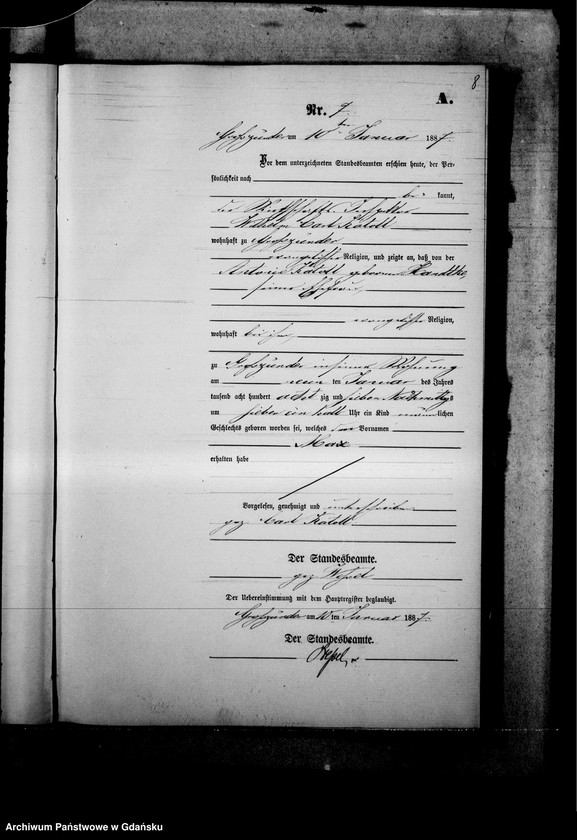 8
A.
Nr. 7
Großzünder am 10ten Januar 1887.
Vor dem unterzeichneten Standesbeamten erschien heute, der Per-
sönlichkeit nach
be kannt,
der Wirthschafts-Inspektor
Wilhelm Carl
wohnhaft zu Großzünder
evangelischer Religion, und zeigte an, daß von der
Antonie geborenen
seiner Ehefrau,
evangelischer Religion,
wohnhaft bei ihm,
zu Großzünder in seiner Wohnung
am neun ten Januar des Jahres
tausend acht hundert achtzig und sieben Nachmittags
um sieben ein halb Uhr ein Kind männlichen
Geschlechts geboren worden sei, welches den Vornamen
Max
erhalten habe
Vorgelesen, genehmigt und unterschrieben
gez. Carl
Der Standesbeamte.
gez.
Der Uebereinstimmung mit dem Hauptregister beglaubigt.
Großzünder am 10ten Januar 1887.
Der Standesbeamte.
Archiwum Państwowe w Gdańsku